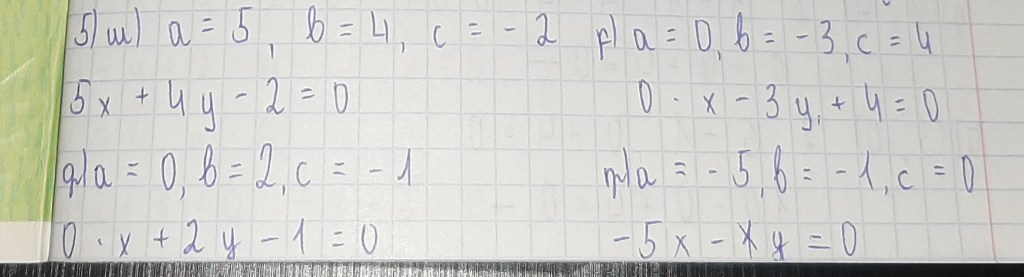 5) ա) a = 5, b = 4, c = - 2 բ) a = 0, b = - 3, c = 4
5x + 4y - 2 = 0 0 · x - 3y + 4 = 0
գ) a = 0, b = 2, c = - 1 դ) a = - 5, b = - 1, c = 0
0 · x + 2y - 1 = 0 - 5x - y = 0